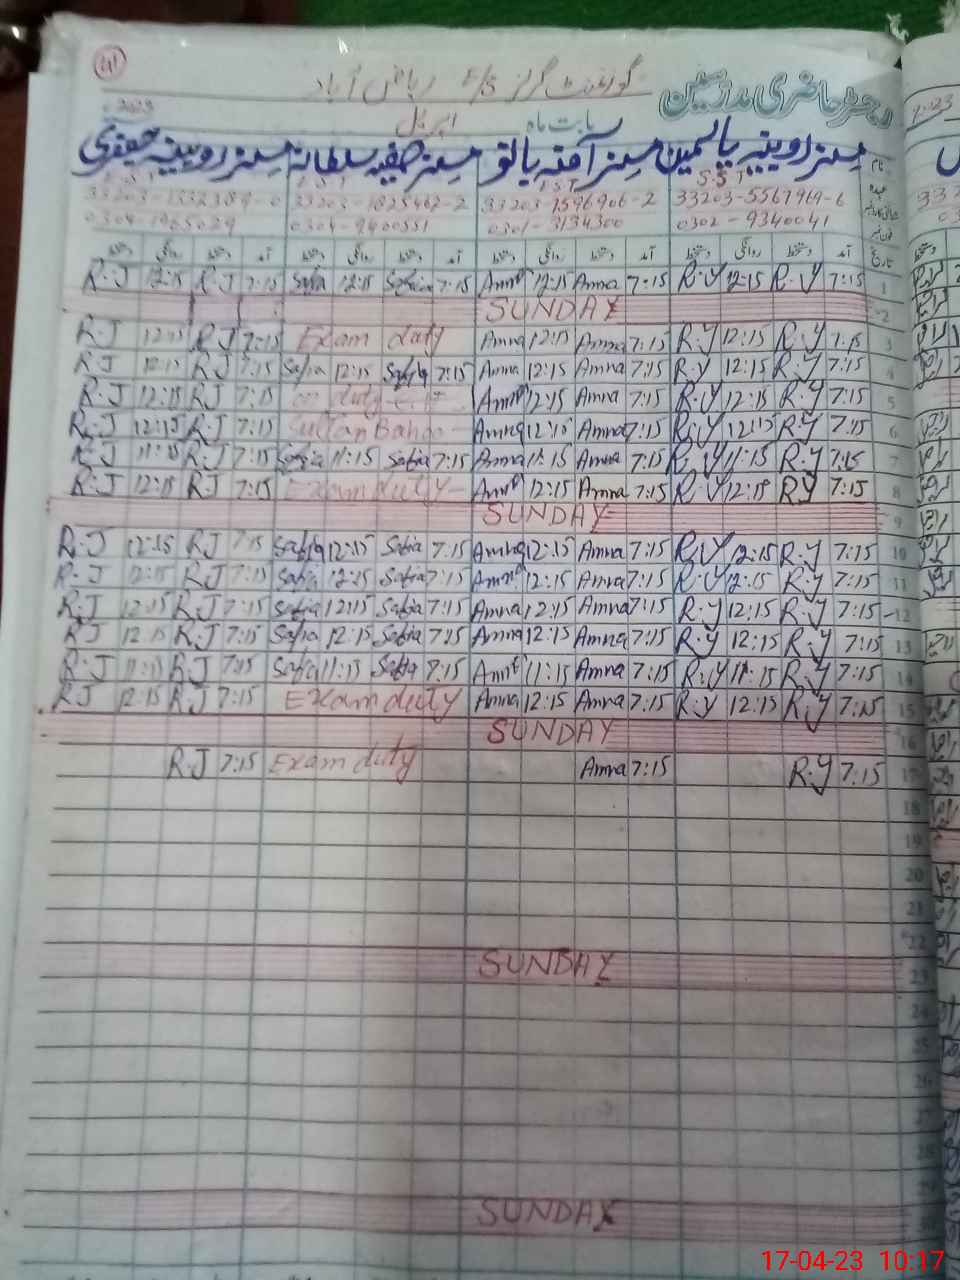 41
گورنمنٹ گرلز E/S ریاض آباد
رجسٹر حاضری مدرسین
2023 اپریل بابت ماہ
مسز روبینہ یاسمین مسز آمنہ بانو مسز صفیہ سلطانہ مسز روبینہ جعفری
نام
S.S.T E.S.T E.S.T
33203-1332389-0 33203-1825462-2 33203-1596906-2 33203-5567969-6
0304-1965029 0304-9400551 0301-3134300 0302-9340041
دستخط روانگی دستخط آمد دستخط روانگی دستخط آمد دستخط روانگی دستخط آمد دستخط روانگی دستخط آمد تاریخ
R.J 12:15 R.J 7:15 Safia 12:15 Safia 7:15 Amna 12:15 Amna 7:15 R.Y 12:15 R.Y 7:15 1
SUNDAY 2
R.J 12:15 R.J 7:15 Exam duty Amna 12:15 Amna 7:15 R.Y 12:15 R.Y 7:15 3
R.J 12:15 R.J 7:15 Safia 12:15 Safia 7:15 Amna 12:15 Amna 7:15 R.Y 12:15 R.Y 7:15 4
R.J 12:15 R.J 7:15 on duty Amna 12:15 Amna 7:15 R.Y 12:15 R.Y 7:15 5
R.J 12:15 R.J 7:15 Sultan Bahoo Amna 12:15 Amna 7:15 R.Y 12:15 R.Y 7:15 6
R.J 11:15 R.J 7:15 Safia 11:15 Safia 7:15 Amna 11:15 Amna 7:15 R.Y 11:15 R.Y 7:15 7
R.J 12:15 R.J 7:15 Exam duty Amna 12:15 Amna 7:15 R.Y 12:15 R.Y 7:15 8
SUNDAY 9
R.J 12:15 R.J 7:15 Safia 12:15 Safia 7:15 Amna 12:15 Amna 7:15 R.Y 12:15 R.Y 7:15 10
R.J 12:15 R.J 7:15 Safia 12:15 Safia 7:15 Amna 12:15 Amna 7:15 R.Y 12:15 R.Y 7:15 11
R.J 12:15 R.J 7:15 Safia 12:15 Safia 7:15 Amna 12:15 Amna 7:15 R.Y 12:15 R.Y 7:15 12
R.J 12:15 R.J 7:15 Safia 12:15 Safia 7:15 Amna 12:15 Amna 7:15 R.Y 12:15 R.Y 7:15 13
R.J 11:15 R.J 7:15 Safia 11:15 Safia 7:15 Amna 11:15 Amna 7:15 R.Y 11:15 R.Y 7:15 14
R.J 12:15 R.J 7:15 Exam duty Amna 12:15 Amna 7:15 R.Y 12:15 R.Y 7:15 15
SUNDAY 16
R.J 7:15 Exam duty Amna 7:15 R.Y 7:15 17
18
19
20
21
22
SUNDAY 23
24
25
26
27
28
29
SUNDAY 30
17-04-23 10:17